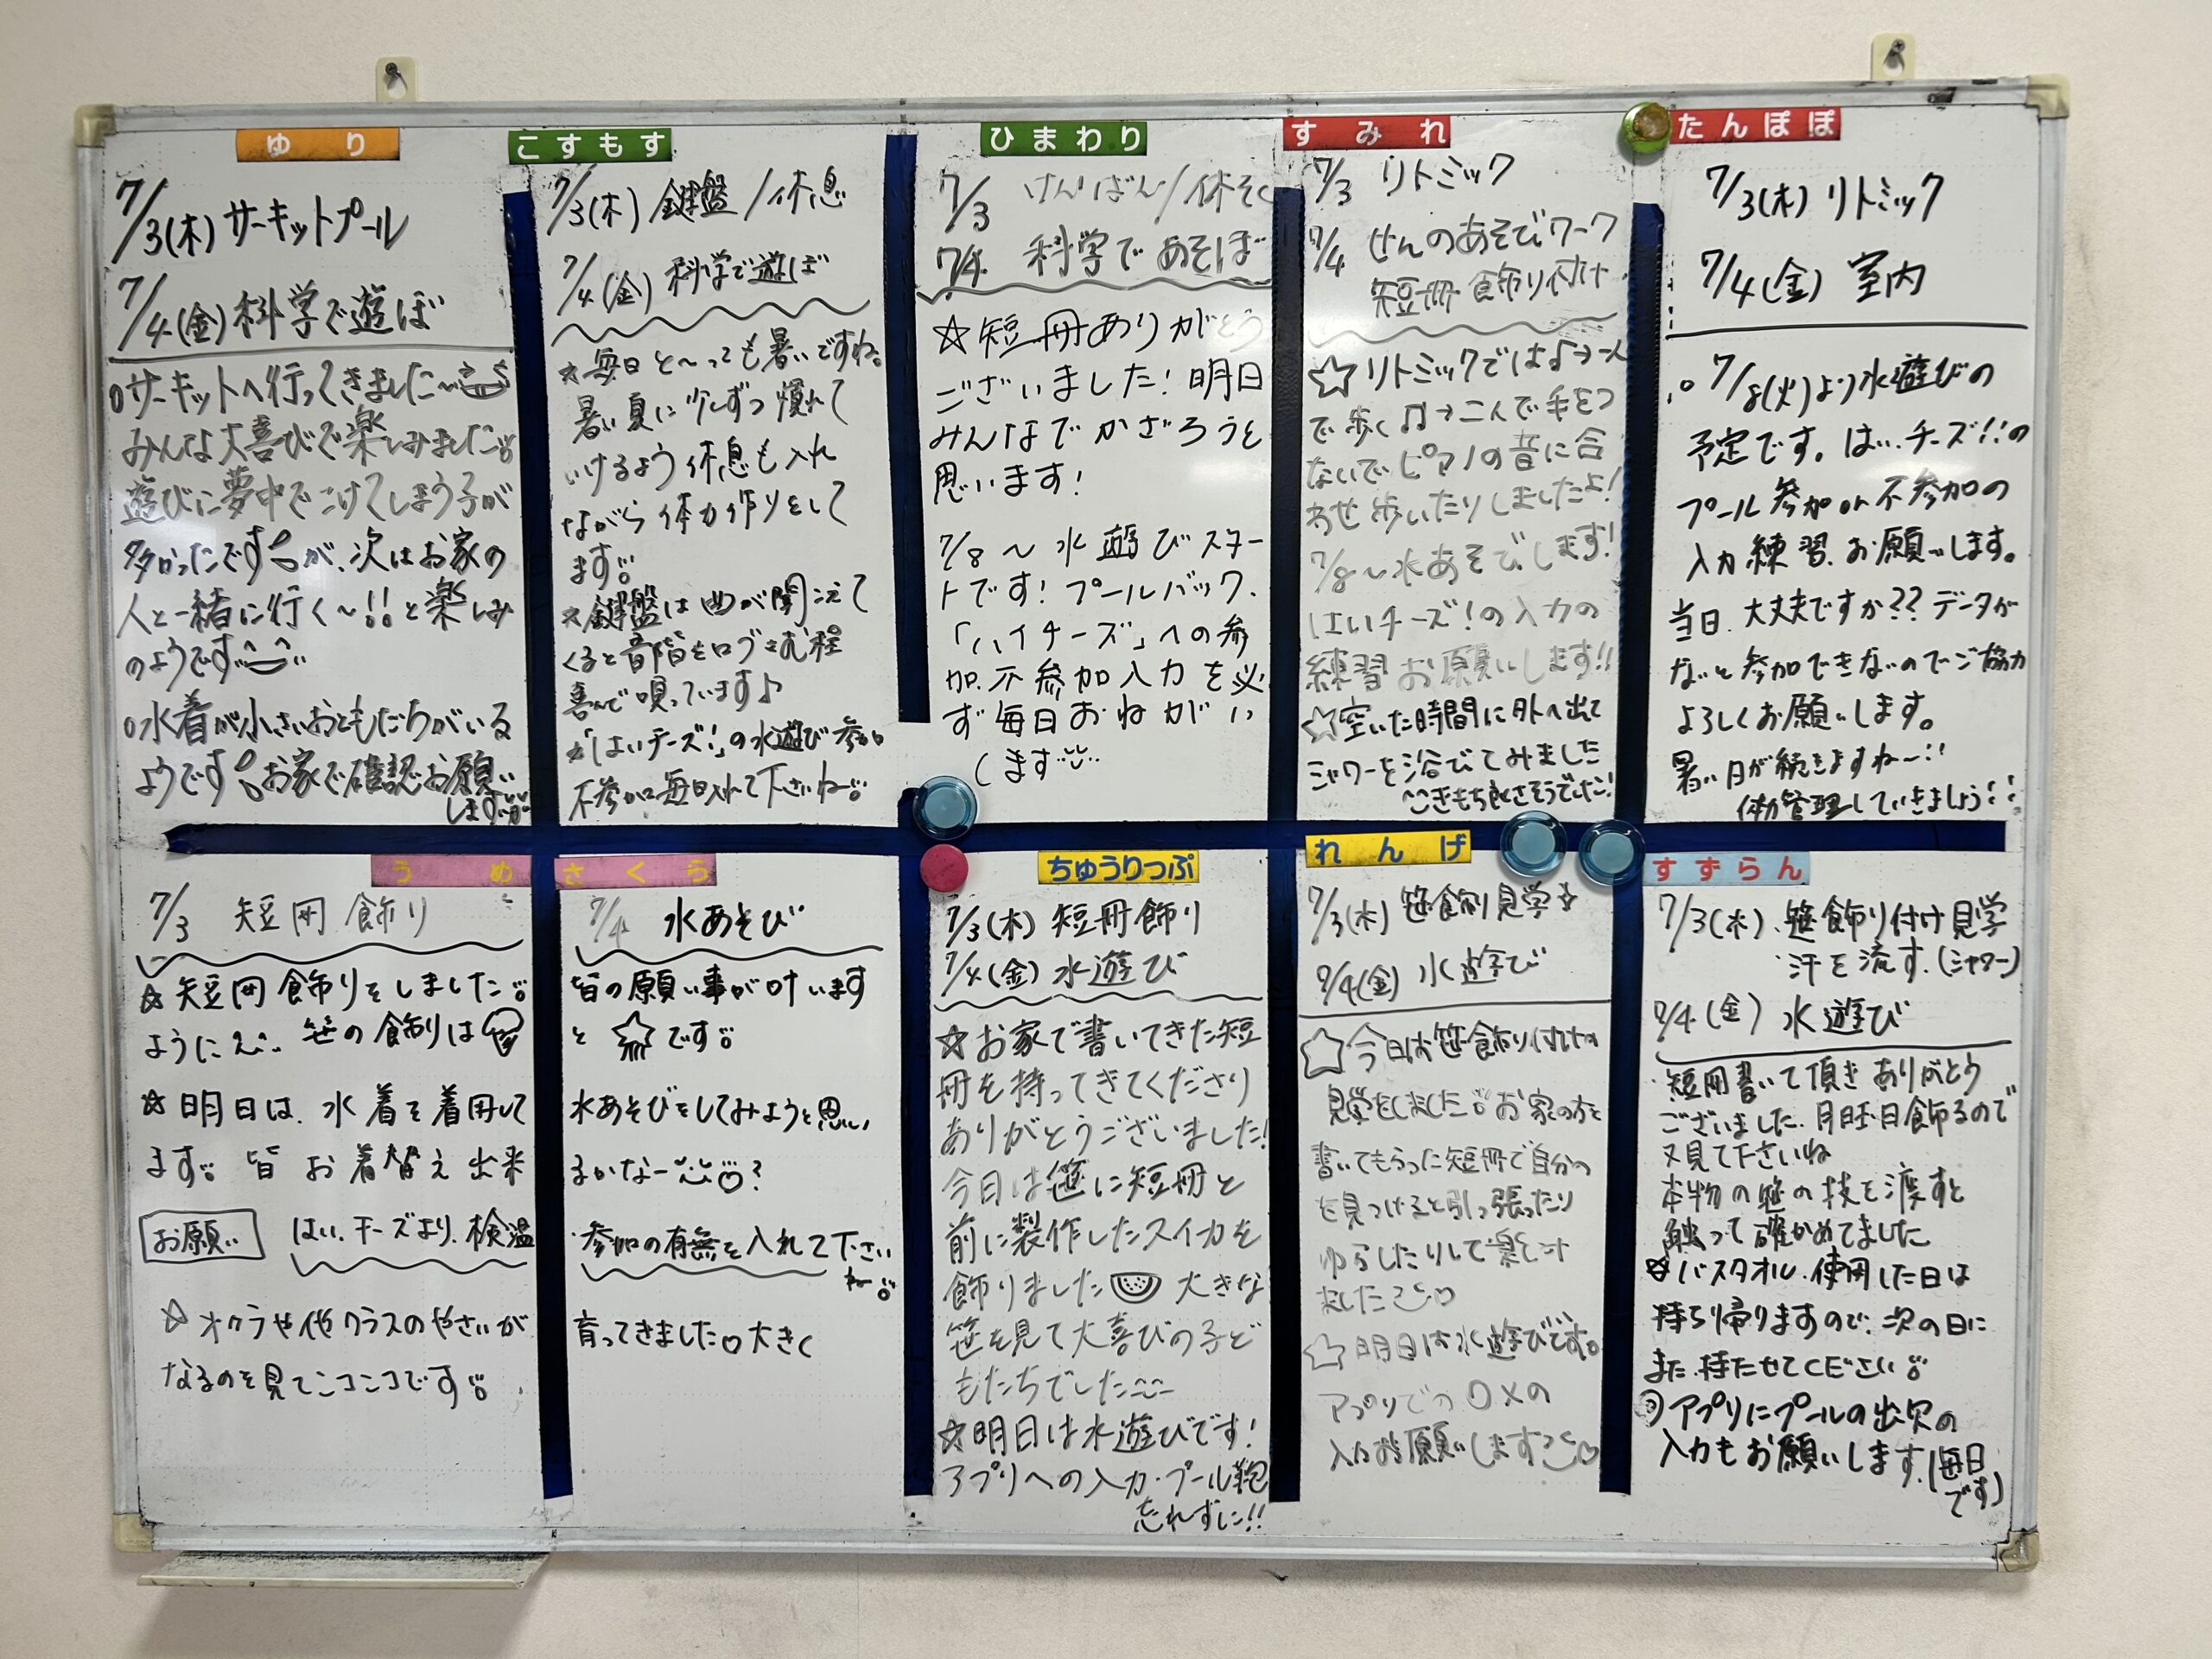 ゆり
7/3(木) サーキットプール
7/4(金) 科学で遊ぼ
○サーキットへ行ってきました〜
みんな大喜びで楽しみました
遊びに夢中でこけてしまう子が
多かったですが、次はお家の
人と一緒に行く〜!!と楽しみ
のようです
○水着が小さいおともだちがいる
ようです お家で確認お願い
します
こすもす
7/3(木) 鍵盤/休息
7/4(金) 科学で遊ぼ
☆毎日と〜っても暑いですね。
暑い夏に少しずつ慣れて
いけるよう休息も入れ
ながら体力作りをして
ます
☆鍵盤は曲が聞こえて
くると音階を口ずさむ程
喜んで唄っています♪
「はいチーズ!」の水遊び参加
不参加毎日入れて下さいね
ひまわり
7/3 けんばん/休そく
7/4 科学であそぼ
☆短冊ありがとう
ございました! 明日
みんなでかざろうと
思います!
7/8〜水遊びスター
トです! プールバック、
「ハイチーズ」への参
加、不参加入力を必
ず毎日おねがい
します
すみれ
7/3 リトミック
7/4 せんのあそびワーク
短冊飾り付け
☆リトミックでは♩→一人
で歩く ♫→二人で手をつ
ないでピアノの音に合
わせ歩いたりしましたよ!
7/8〜水あそびします!
はいチーズ!の入力の
練習お願いします!!
☆空いた時間に外へ出て
シャワーを浴びてみました
〜きもち良さそうでした!
たんぽぽ
7/3(木) リトミック
7/4(金) 室内
○7/8(火)より水遊びの
予定です。はい、チーズ!!の
プール参加or不参加の
入力練習、お願いします。
当日、大丈夫ですか?? データが
ないと参加できないのでご協力
よろしくお願いします。
暑い日が続きますね〜!!
体力管理していきましょう!!
うめ
7/3 短冊飾り
☆短冊飾りをしました
ように 笹の飾りは
☆明日は、水着を着用して
ます 皆お着替え出来
お願い はい、チーズより、検温
☆オクラや他クラスのやさいが
なるのを見てニコニコです
さくら
7/4 水あそび
皆の願い事が叶います
と です
水あそびをしてみようと思い
るかなー?
・参加の有無を入れて下さい
ね
育ってきました 大きく
ちゅうりっぷ
7/3(木) 短冊飾り
7/4(金) 水遊び
☆お家で書いてきた短
冊を持ってきてくださり
ありがとうございました!
今日は笹に短冊と
前に製作したスイカを
飾りました 大きな
笹を見て大喜びの子ど
もたちでした
☆明日は水遊びです!
アプリへの入力・プール鞄
忘れずに!!
れんげ
7/3(木) 笹飾り見学
7/4(金) 水遊び
☆今日は笹飾り付けの
見学をしました お家の方に
書いてもらった短冊で自分の
を見つけると引っ張ったり
ゆらしたりして楽しみ
ました
☆明日は水遊びです。
アプリでの○×の
入力お願いします
すずらん
7/3(木) 笹飾り付け見学
汗を流す(シャワー)
7/4(金) 水遊び
・短冊書いて頂きありがとう
ございました。明日飾るので
又見て下さいね
本物の笹の枝を渡すと
触って確かめてました
☆バスタオル、使用した日は
持ち帰りますので、次の日に
また、持たせてください
アプリにプールの出欠の
入力もお願いします。(毎日
です)